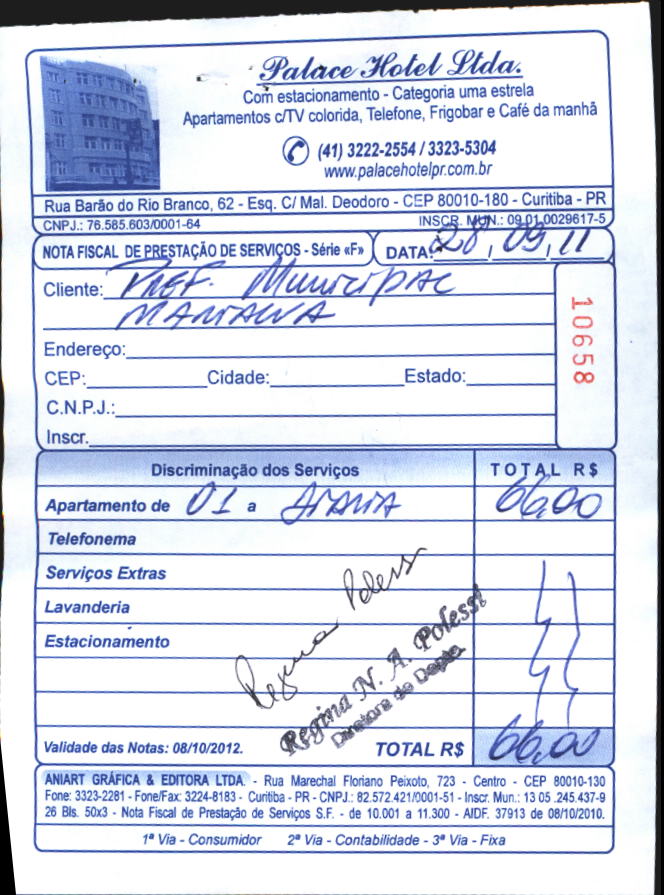 Palace Hotel Ltda.
Com estacionamento - Categoria uma estrela
Apartamentos c/TV colorida, Telefone, Frigobar e Café da manhã
(41) 3222-2554 / 3323-5304
www.palacehotelpr.com.br
Rua Barão do Rio Branco, 62 - Esq. C/ Mal. Deodoro - CEP 80010-180 - Curitiba - PR
CNPJ.: 76.585.603/0001-64 INSCR. MUN.: 09.01.0029617-5
NOTA FISCAL DE PRESTAÇÃO DE SERVIÇOS - Série «F» DATA: 28, 09, 11
Cliente: PREF. MUNICIPAL
10658
Endereço:
CEP: Cidade: Estado:
C.N.P.J.:
Inscr.
Discriminação dos Serviços TOTAL R$
Apartamento de 01 a 66,00
Telefonema
Serviços Extras
Lavanderia
Estacionamento
Regina Polessi
Regina N. A. Polessi
Diretora de Depto.
Validade das Notas: 08/10/2012. TOTAL R$ 66,00
ANIART GRÁFICA & EDITORA LTDA. - Rua Marechal Floriano Peixoto, 723 - Centro - CEP 80010-130
Fone: 3323-2281 - Fone/Fax: 3224-8183 - Curitiba - PR - CNPJ.: 82.572.421/0001-51 - Inscr. Mun.: 13 05 .245.437-9
26 Bls. 50x3 - Nota Fiscal de Prestação de Serviços S.F. - de 10.001 a 11.300 - AIDF. 37913 de 08/10/2010.
1ª Via - Consumidor 2ª Via - Contabilidade - 3ª Via - Fixa